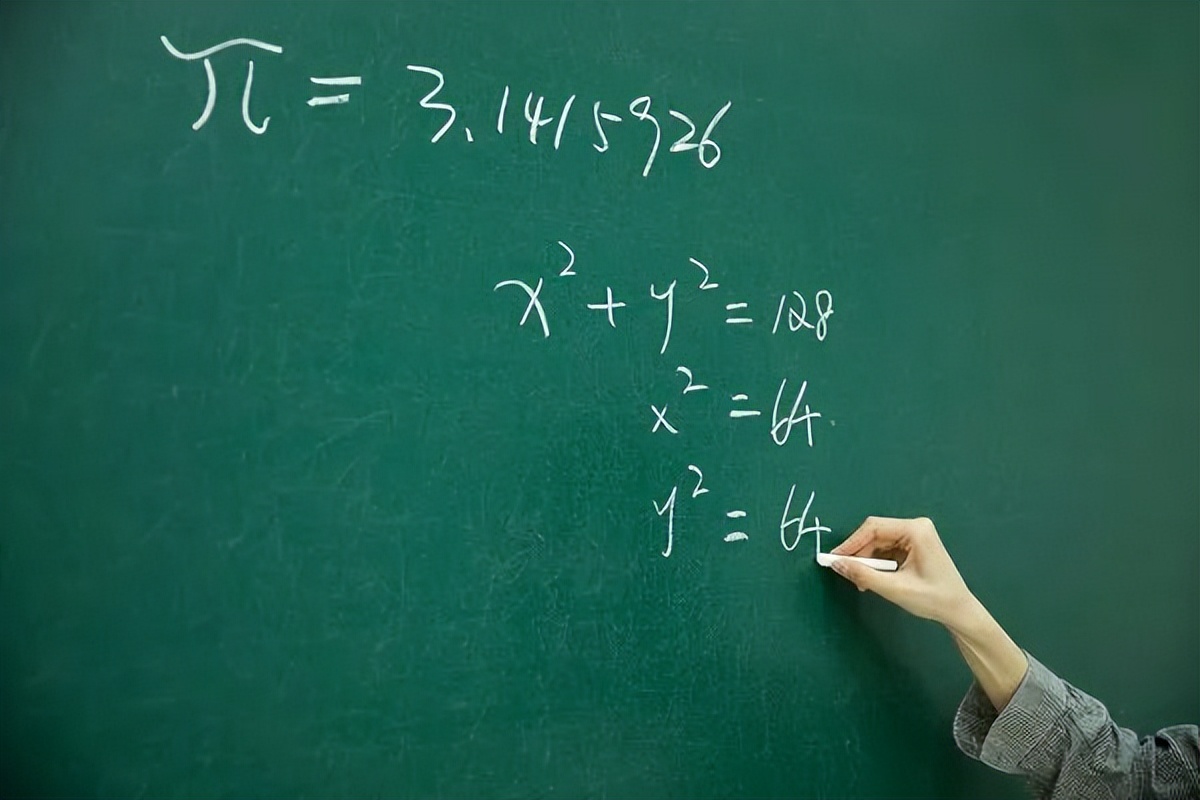 π = 3.1415926
x² + y² = 128
x² = 64
y² = 64